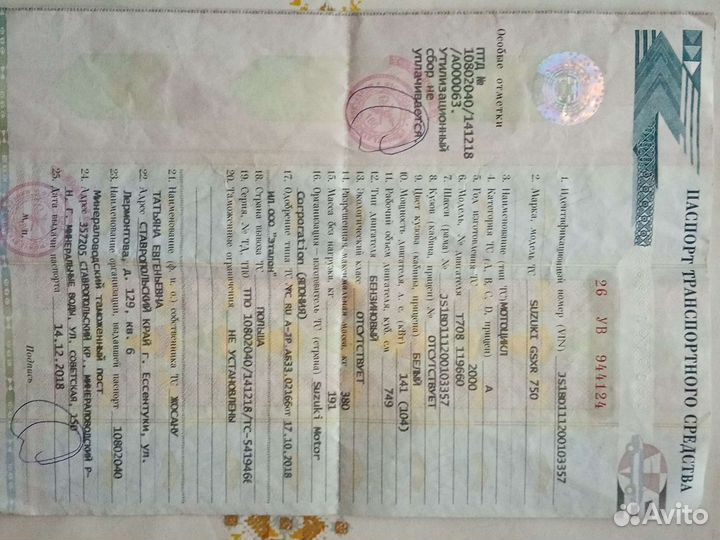 ПАСПОРТ ТРАНСПОРТНОГО СРЕДСТВА
26 УВ 944124
1. Идентификационный номер (VIN) JS1BD111200103357
2. Марка, модель ТС SUZUKI GSXR 750
3. Наименование (тип ТС) МОТОЦИКЛ
4. Категория ТС (A, B, C, D, прицеп) A
5. Год изготовления ТС 2000
6. Модель, № двигателя T708 119660
7. Шасси (рама) № JS1BD111200103357
8. Кузов (кабина, прицеп) № ОТСУТСТВУЕТ
9. Цвет кузова (кабины, прицепа) БЕЛЫЙ
10. Мощность двигателя, л. с. (кВт) 141 (104)
11. Рабочий объем двигателя, куб. см 749
12. Тип двигателя БЕНЗИНОВЫЙ
13. Экологический класс ОТСУТСТВУЕТ
14. Разрешенная максимальная масса, кг 380
15. Масса без нагрузки, кг 191
16. Организация - изготовитель ТС (страна) Suzuki Motor
Corporation (ЯПОНИЯ)
17. Одобрение типа ТС № ТС RU А-JP.АБ33.02166 от 17.10.2018
ИЛ ООО "Эталон"
18. Страна вывоза ТС ПОЛЬША
19. Серия, № ТД, ТПО ТПО 10802040/141218/ТС-5419466
20. Таможенные ограничения НЕ УСТАНОВЛЕНЫ
21. Наименование (ф. и. о.) собственника ТС ЖОСАНУ
ТАТЬЯНА ЕВГЕНЬЕВНА
22. Адрес СТАВРОПОЛЬСКИЙ КРАЙ Г. Ессентуки, ул.
Лермонтова, д. 129, кв. 6
23. Наименование организации, выдавшей паспорт 10802040
Минераловодский таможенный пост
24. Адрес 357205 СТАВРОПОЛЬСКИЙ КР., МИНЕРАЛОВОДСКИЙ Р-
Н, Г. МИНЕРАЛЬНЫЕ ВОДЫ, УЛ. СОВЕТСКАЯ, 150
25. Дата выдачи паспорта 14.12.2018
М. П.
Подпись
Особые отметки
ПТД №
10802040/141218
/А000063.
Утилизационный
сбор не
уплачивается.
Avito